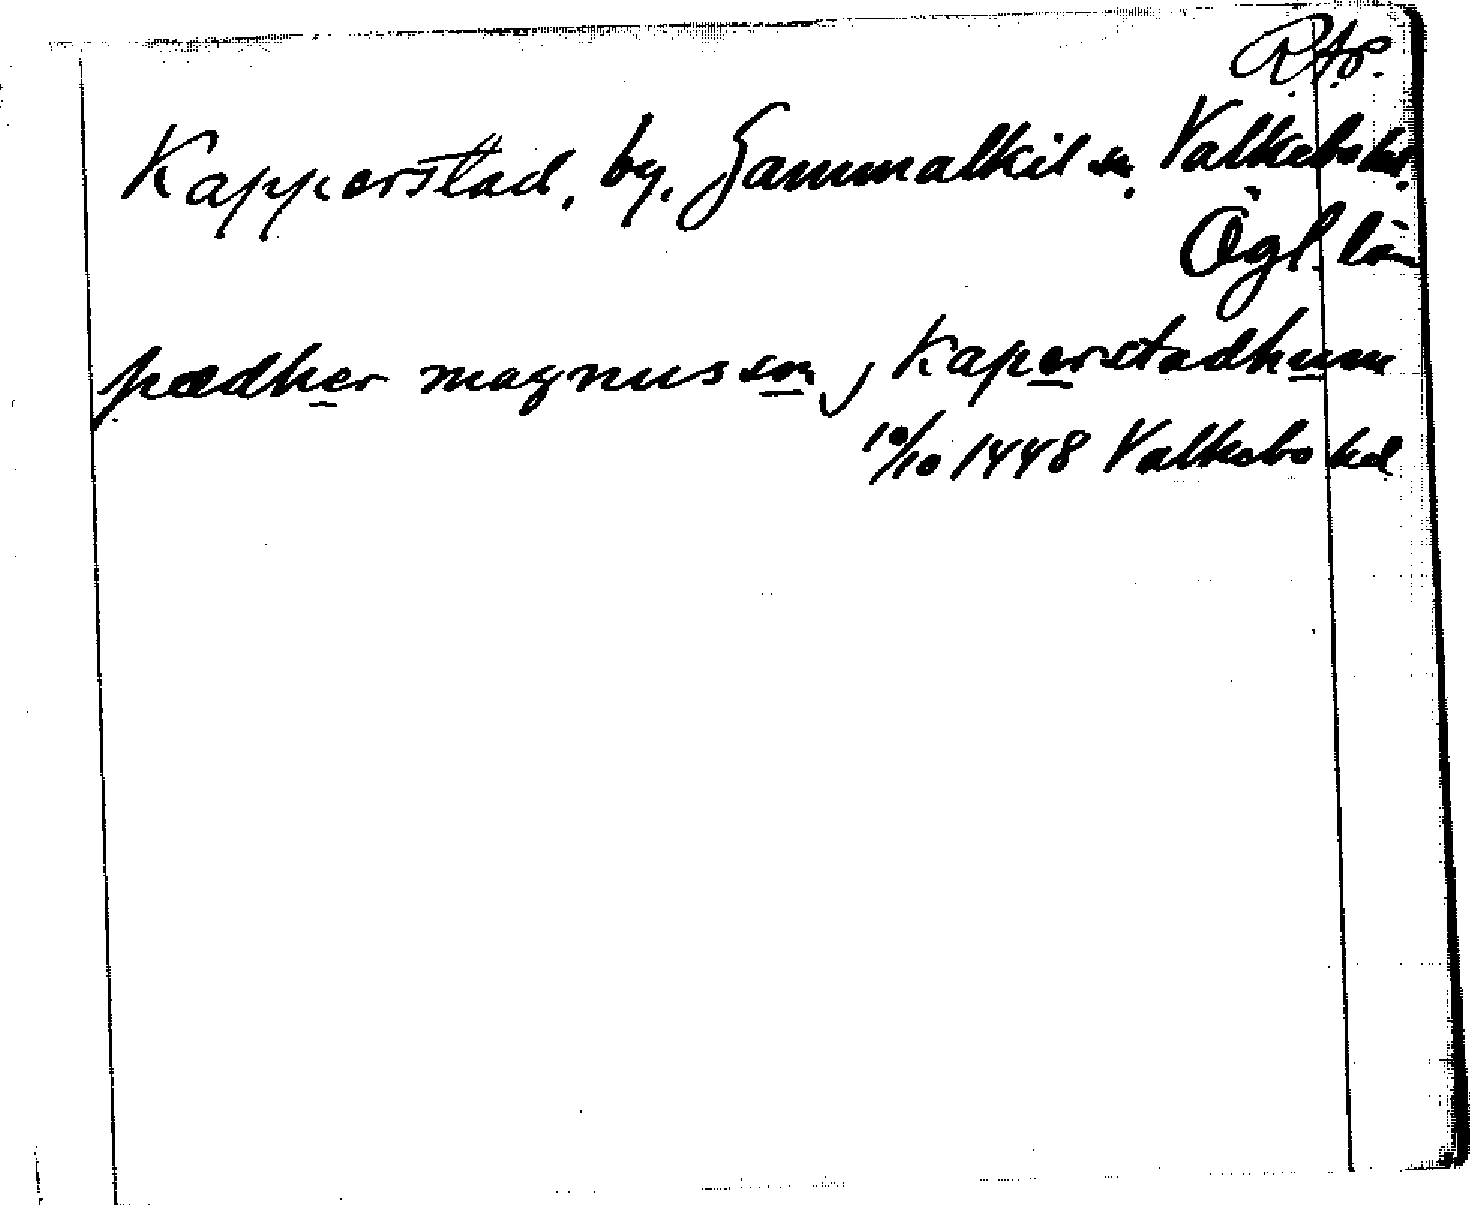 RAp.
Kapperstad, by, Gammalkil sn, Valkebo hd.
Ögl. län
pædher magnusson j kaperstadhum
10/10 1448 Valkebo hd